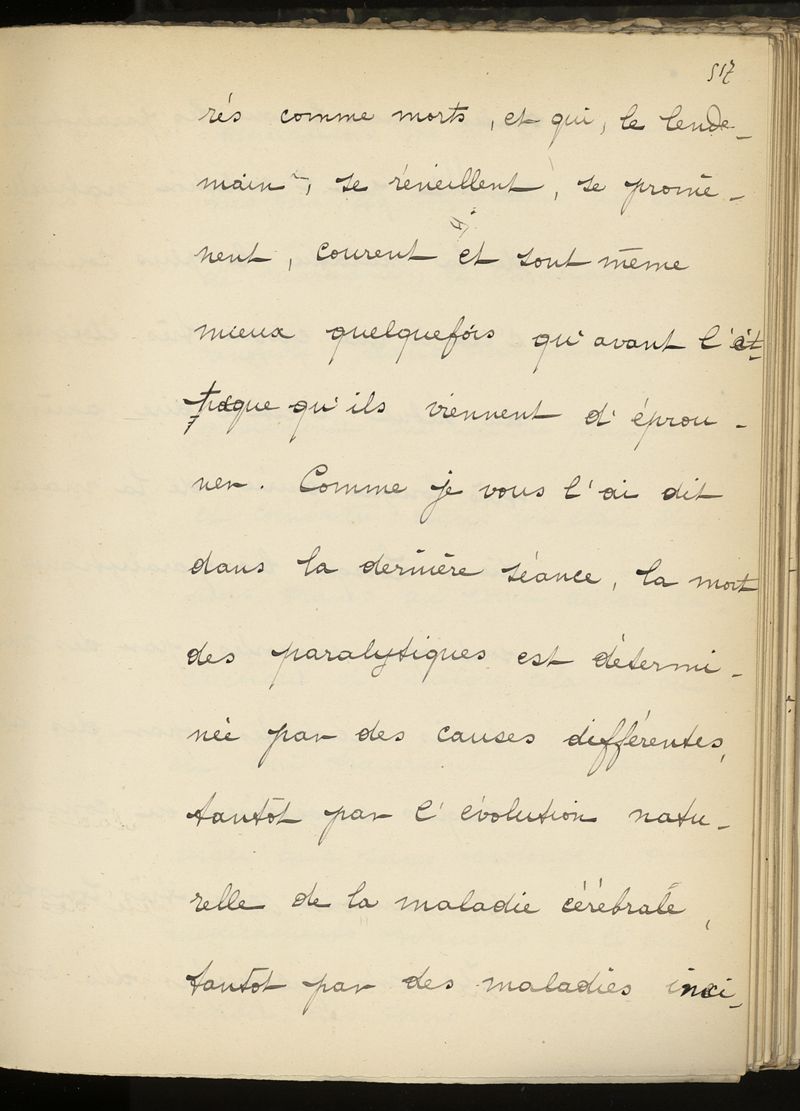 517
rés comme morts, et qui, le lende-
main, se réveillent, se promè-
nent, courent et sont même
mieux quelquefois qu'avant l'at-
taque qu'ils viennent d'éprou-
ver. Comme je vous l'ai dit
dans la dernière séance, la mort
des paralytiques est détermi-
née par des causes différentes,
tantôt par l'évolution natu-
relle de la maladie cérébrale,
tantôt par des maladies inci-